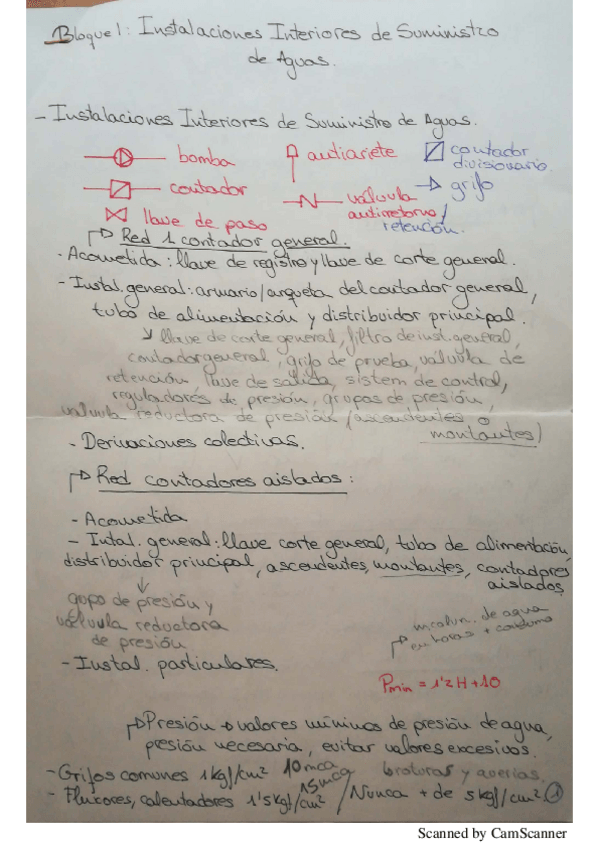 Bloque 1: Instalaciones Interiores de Suministro
de Aguas.
- Instalaciones Interiores de Suministro de Aguas.
bomba
antiariete
contador
divisionario
contador
válvula
antirretorno/
retención.
grifo
llave de paso
Red 1 contador general.
· Acometida: llave de registro y llave de corte general.
- Instal. general: armario/arqueta del contador general,
tubo de alimentación y distribuidor principal.
llave de corte general, filtro de inst. general,
contador general, grifo de prueba, válvula de
retención, llave de salida, sistem de control,
reguladores de presión, grupos de presión,
válvula reductora de presión (ascendentes o
montantes)
- Derivaciones colectivas.
Red contadores aislados:
- Acometida
- Intal. general: llave corte general, tubo de alimentación,
distribuidor principal, ascendentes, montantes, contadores
aislados
gupo de presión y
válvula reductora
de presión
m.colum. de agua
en horas + consumo
- Instal. particulares.
Pmin = 1'2 H + 10
Presión → valores mínimos de presión de agua,
presión necesaria, evitar valores excesivos.
- Grifos comunes 1 kgf/cm² 10 mca
roturas y averías.
- Fluxores, calentadores 1'5 kgf/cm² 15 mca / Nunca + de 5 kgf/cm². 1
Scanned by CamScanner